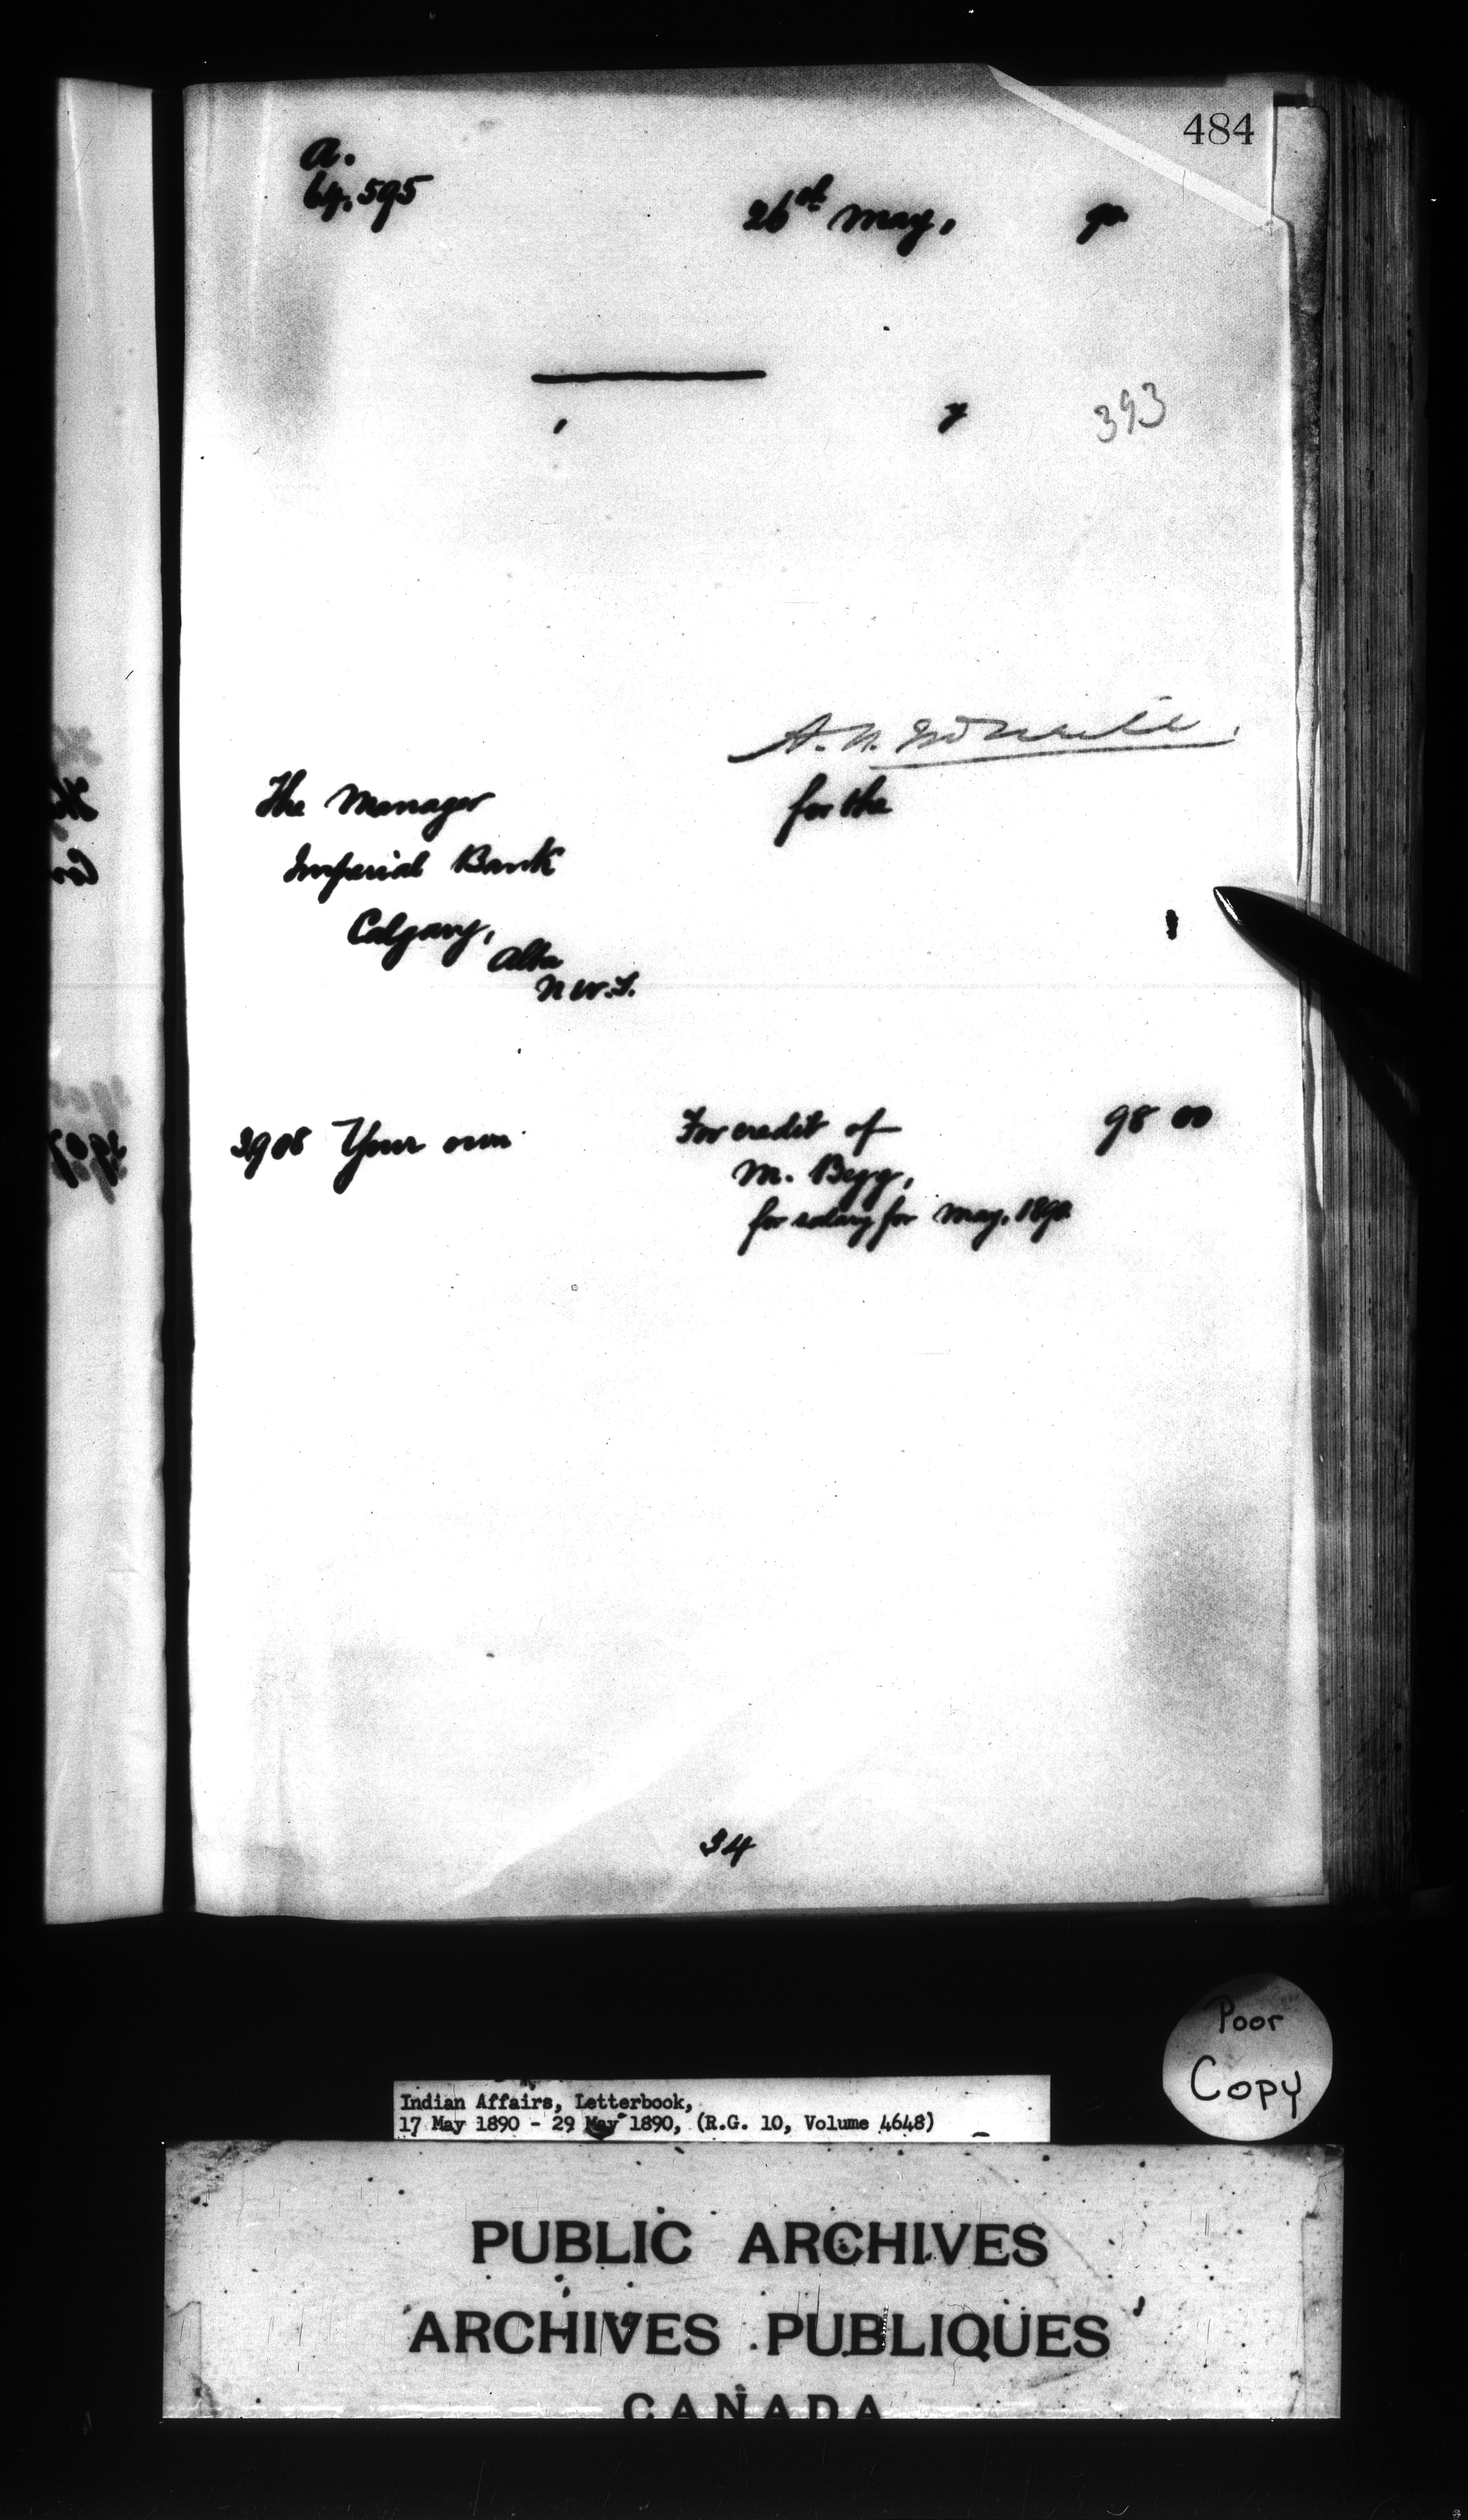 484
a.
64.595
26th May, 90
393
A. N. McNeill.
The Manager
for the
Imperial Bank
Calgary,
Alta
N W. T.
3908 Your own
For credit of
98 00
M. Begg,
for salary for May, 1890
34
Poor
Copy
Indian Affairs, Letterbook,
17 May 1890 - 29 May 1890, (R.G. 10, Volume 4648)
PUBLIC ARCHIVES
ARCHIVES PUBLIQUES
CANADA